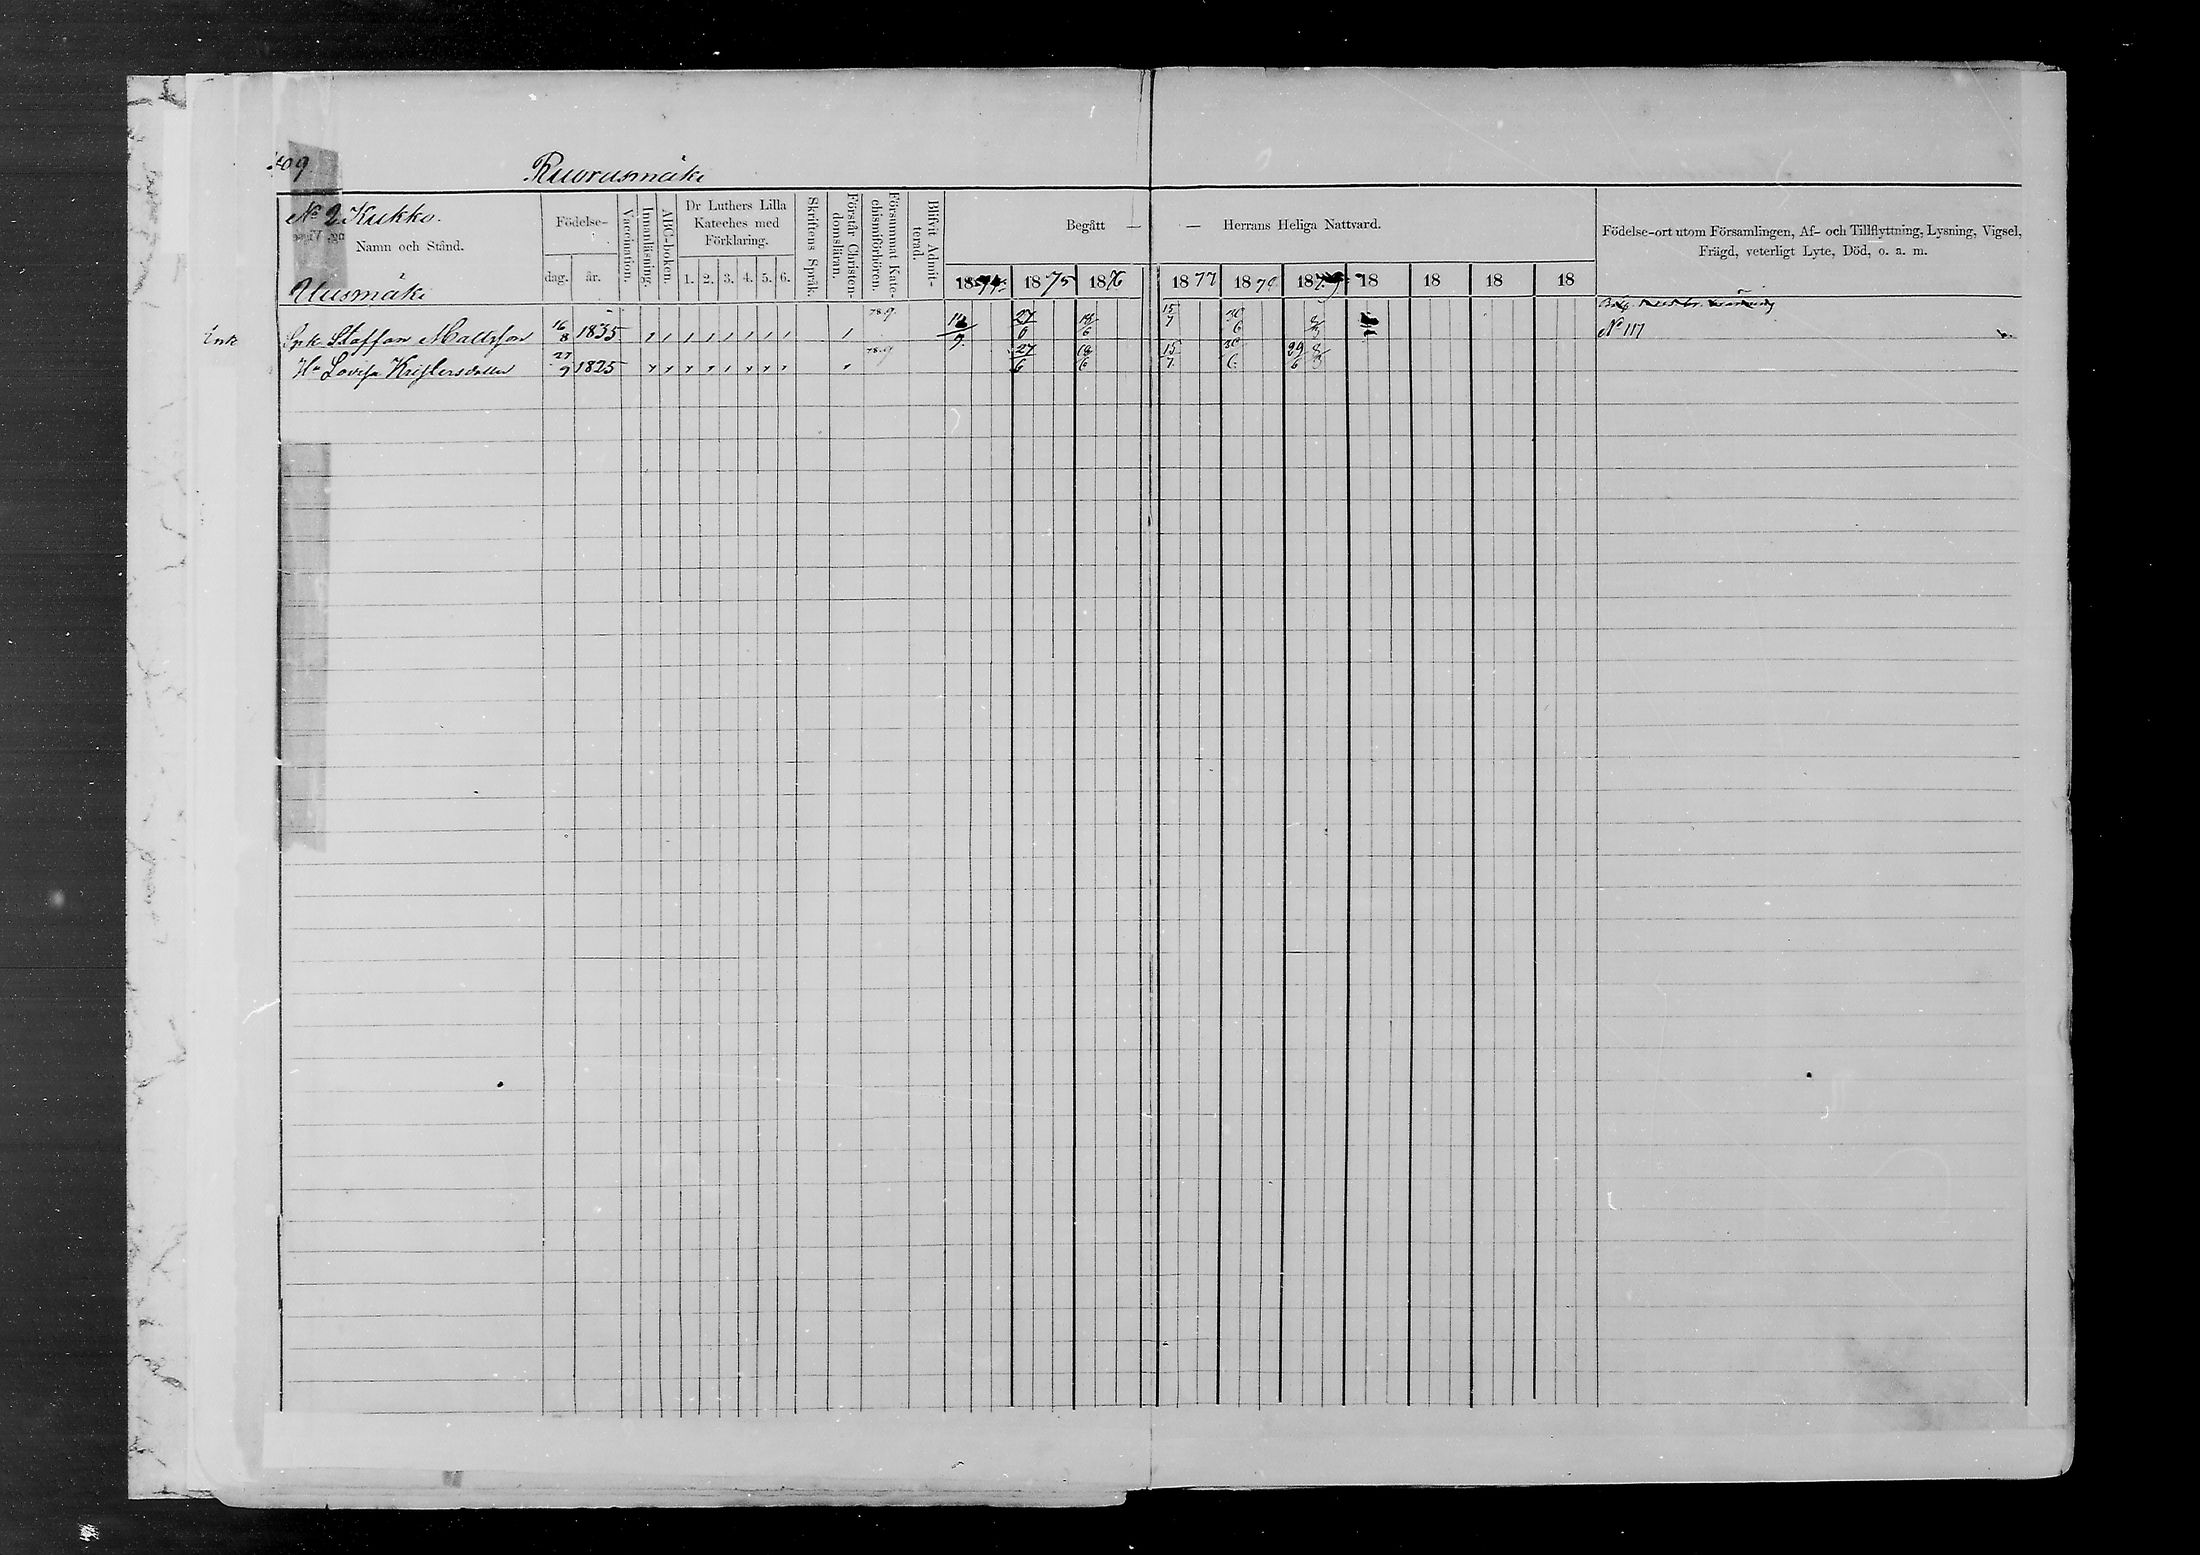 Ruorasmäki
№ 2 Kukko.
Namn och Stånd.
Födelse-
dag. år.
Vaccination.
Innanläsning.
ABC-boken.
Dr Luthers Lilla
Kateches med
Förklaring.
1. 2. 3. 4. 5. 6.
Skriftens Språk.
Förstår Christen-
domsläran.
Försummat Kate-
chismiförhören.
Blifvit Admit-
terad.
Begått — — Herrans Heliga Nattvard.
1874. 1875 1876 1877 1878 1879 18 18 18 18
Födelse-ort utom Församlingen, Af- och Tillflyttning, Lysning, Vigsel,
Frägd, veterligt Lyte, Död, o. a. m.
Uusmäki
Enk Staffan Mattsson 16/8 1835 78.9. 27/6 18/6 15/7 30/6 № 117
Hu Lovisa Kristersdotter 27/9 1825 78.9 27/6 18/6 15/7 30/6 29/6